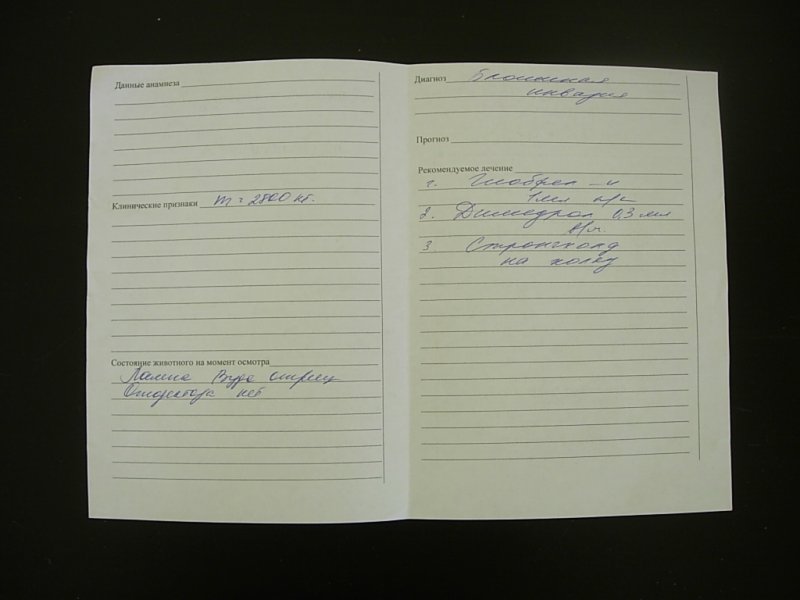 Данные анамнеза
Клинические признаки m = 2800 кг.
Состояние животного на момент осмотра
Лампа Вуда отриц
Отодектоза нет
Диагноз Блошиная
инвазия
Прогноз
Рекомендуемое лечение
1. Глобфел -4
1 мл п/к
2. Димедрол 0,3 мл
в/м.
3. Стронгхолд
на холку